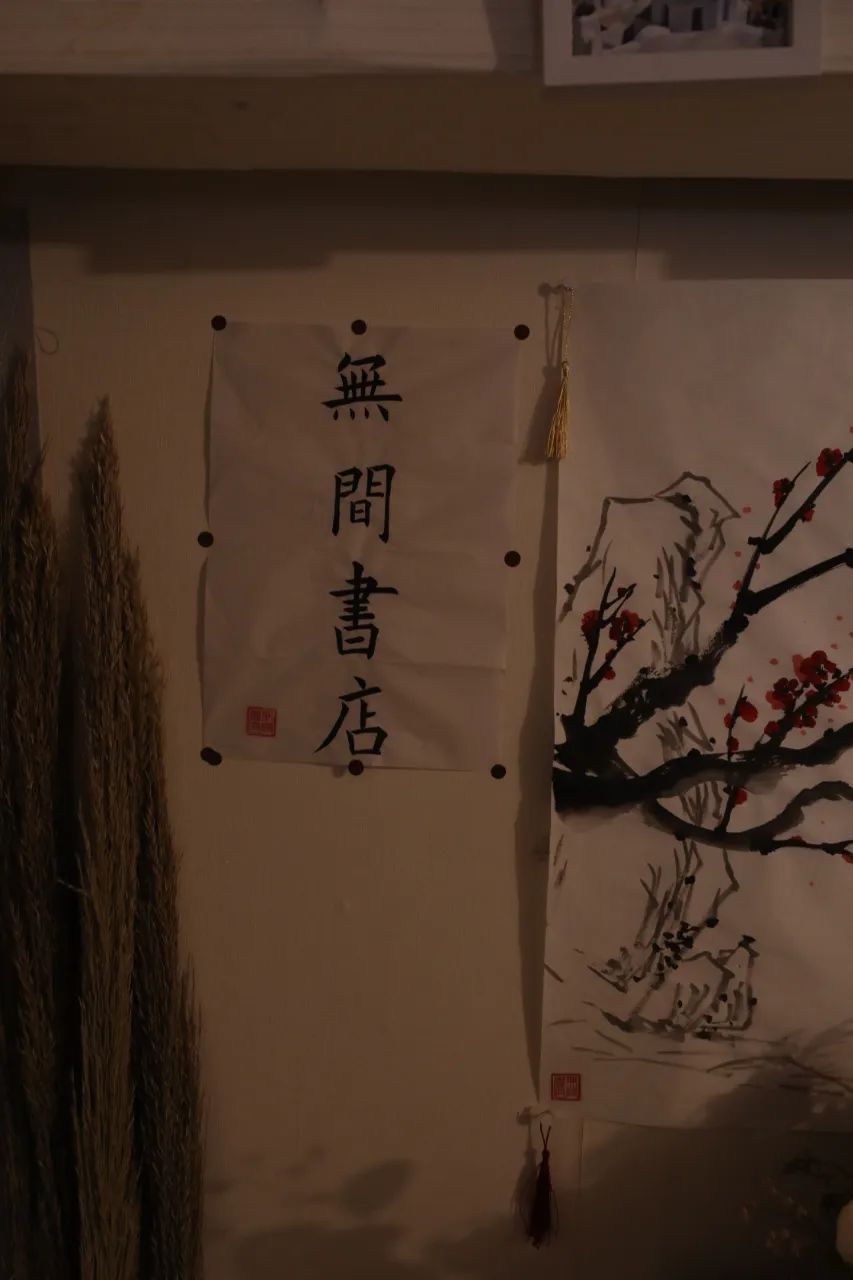 無間書店